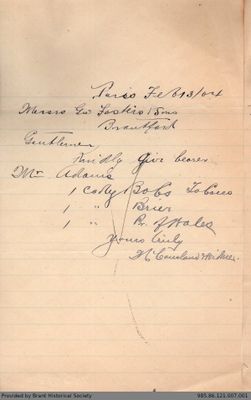 Paris Feb 13/04
Messrs Geo Foster & Sons
Brantford
Gentlemen
Kindly Give bearer
Mr Adams
1 caddy Bobs Tobacco
1 " Brier
1 " P. of Wales
Yours truly
Provided by Brant Historical Society
985.86.121.007.061